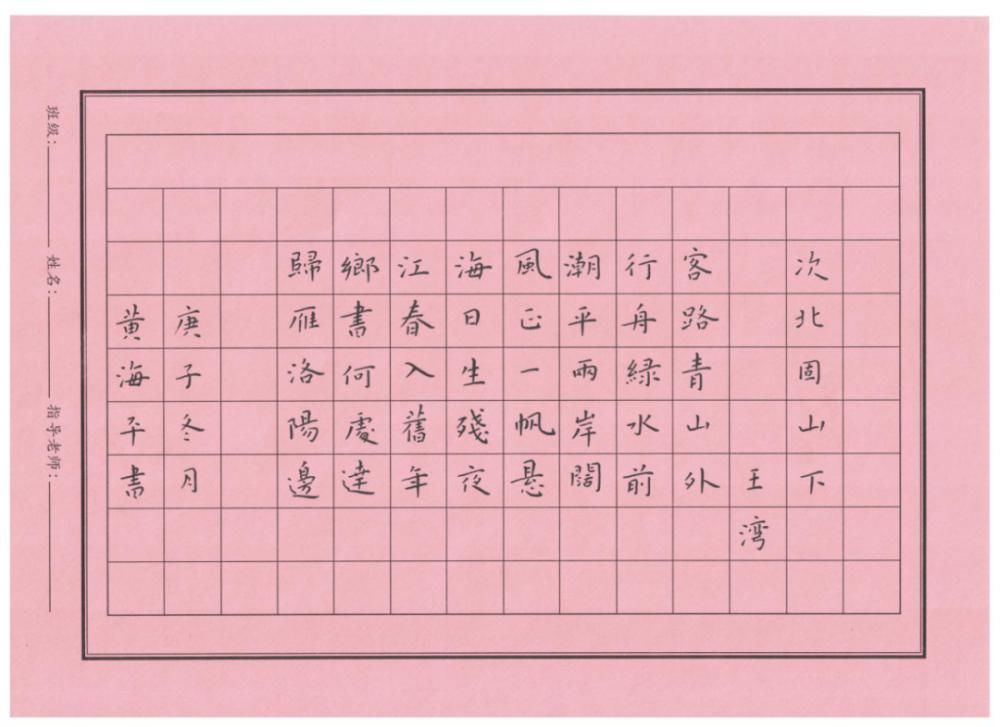 次北固山下
王湾
客路青山外
行舟綠水前
潮平兩岸闊
風正一帆悬
海日生殘夜
江春入舊年
鄉書何處達
歸雁洛陽邊
庚子冬月
黄海平書
班级:
姓名:
指导老师: